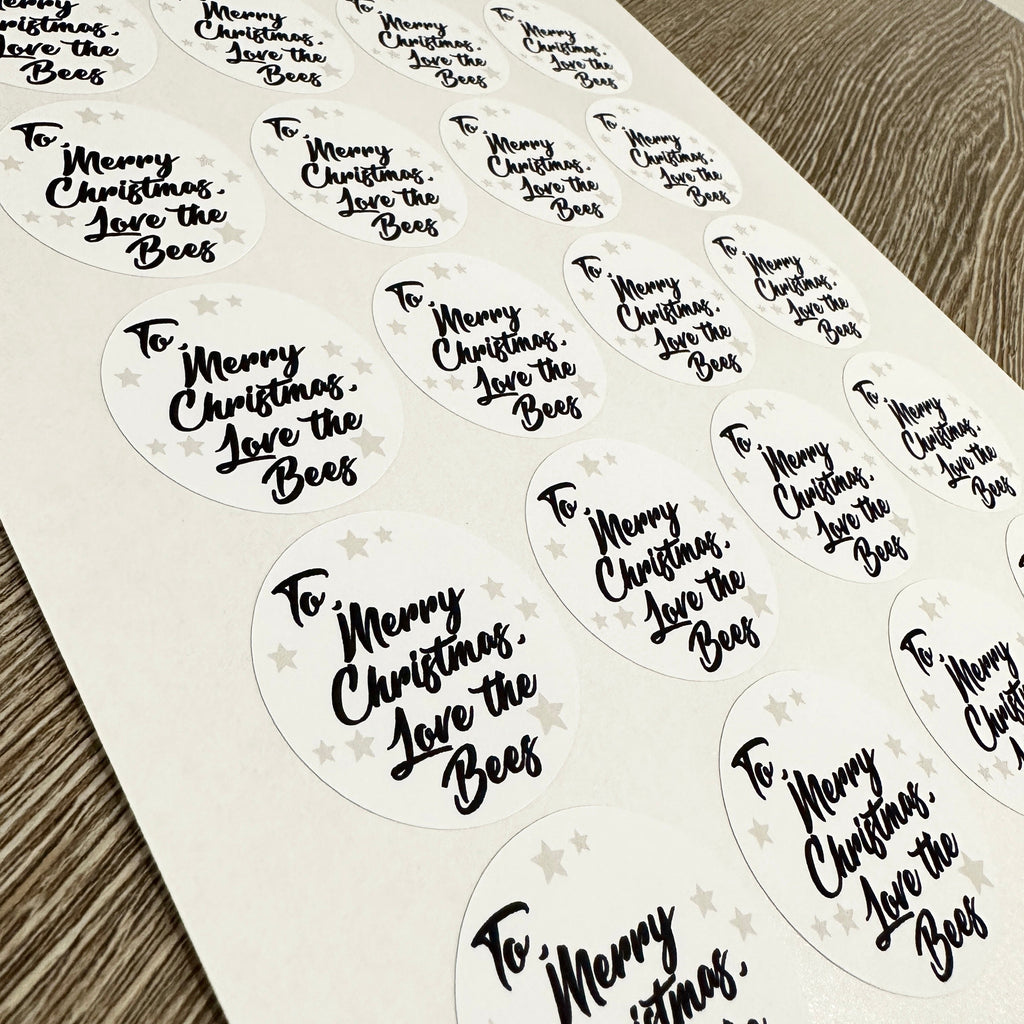 erry
ristmas,
Love the
Bees
To,
Merry
Christmas,
Love the
Bees
To,
Merry
Christmas,
Love the
Bees
To,
Merry
Christmas,
Love the
Bees
To,
Merry
Christmas,
Love the
Bees
To,
Merry
Christmas,
Love the
Bees
To,
Merry
Christmas,
Love the
Bees
To,
Merry
Christmas,
Love the
Bees
To,
Merry
Christmas,
Love the
Bees
To,
Merry
Christmas,
Love the
Bees
To,
Merry
Christmas,
Love the
Bees
To,
Merry
Christmas,
Love the
Bees
To,
Merry
Christmas,
Love the
Bees
To,
Merry
Christmas,
Love the
Bees
To,
Merry
Christmas,
Love the
Bees
To,
Merry
Christmas,
Love the
Bees
To,
Merry
To,
Merry
Christmas,
Love the
Bees
To,
Merry